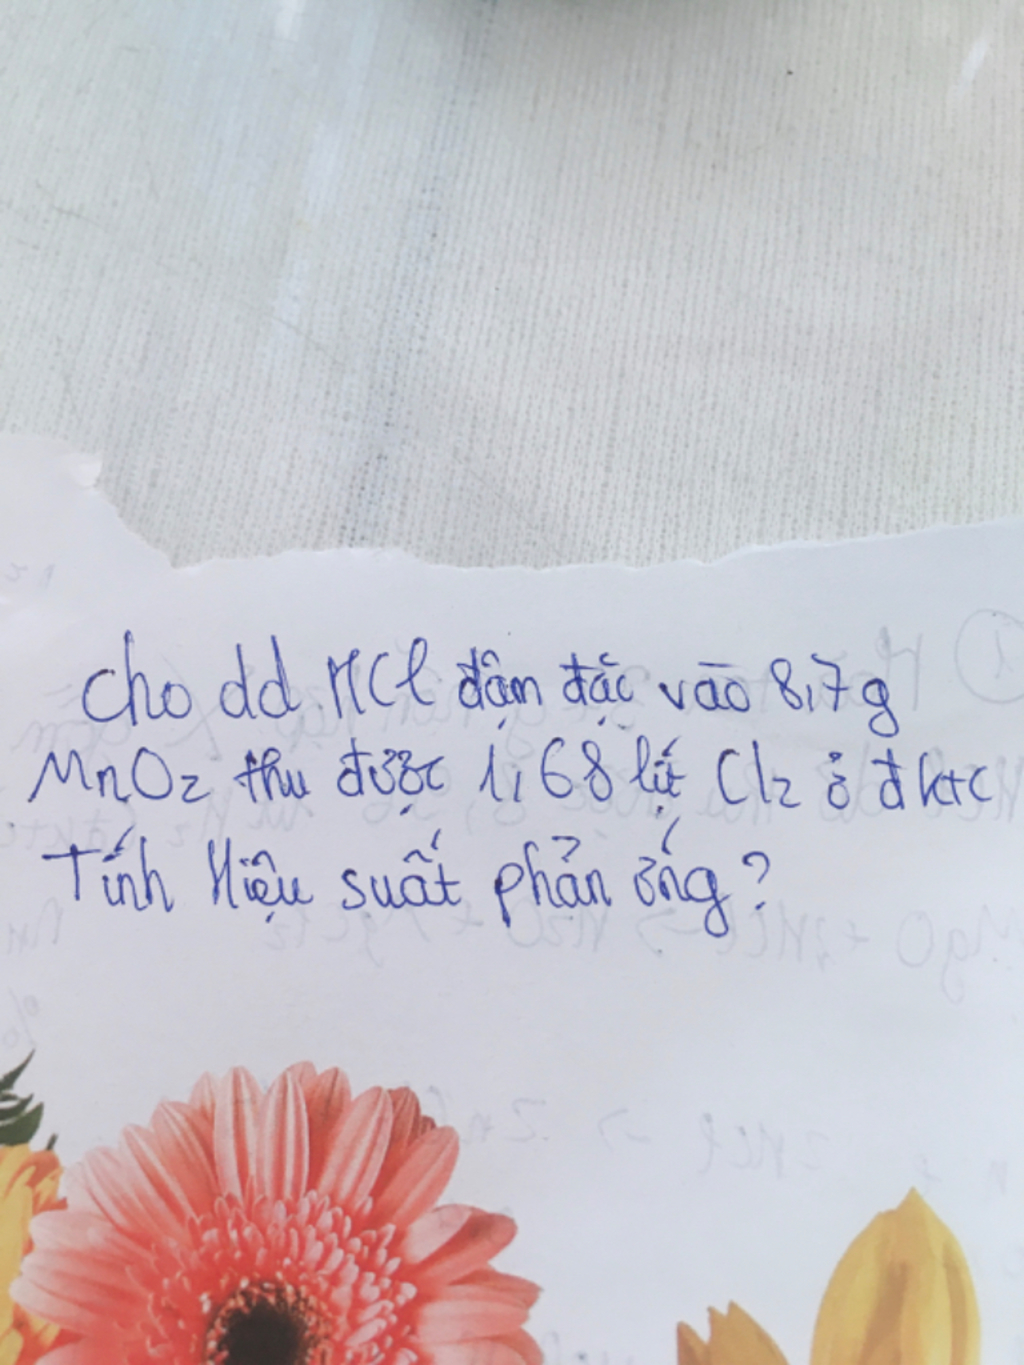 Cho dd HCl đậm đặc vào 8,7g
MnO2 thu được 1,68 lít Cl2 ở đktc
Tính Hiệu suất phản ứng?